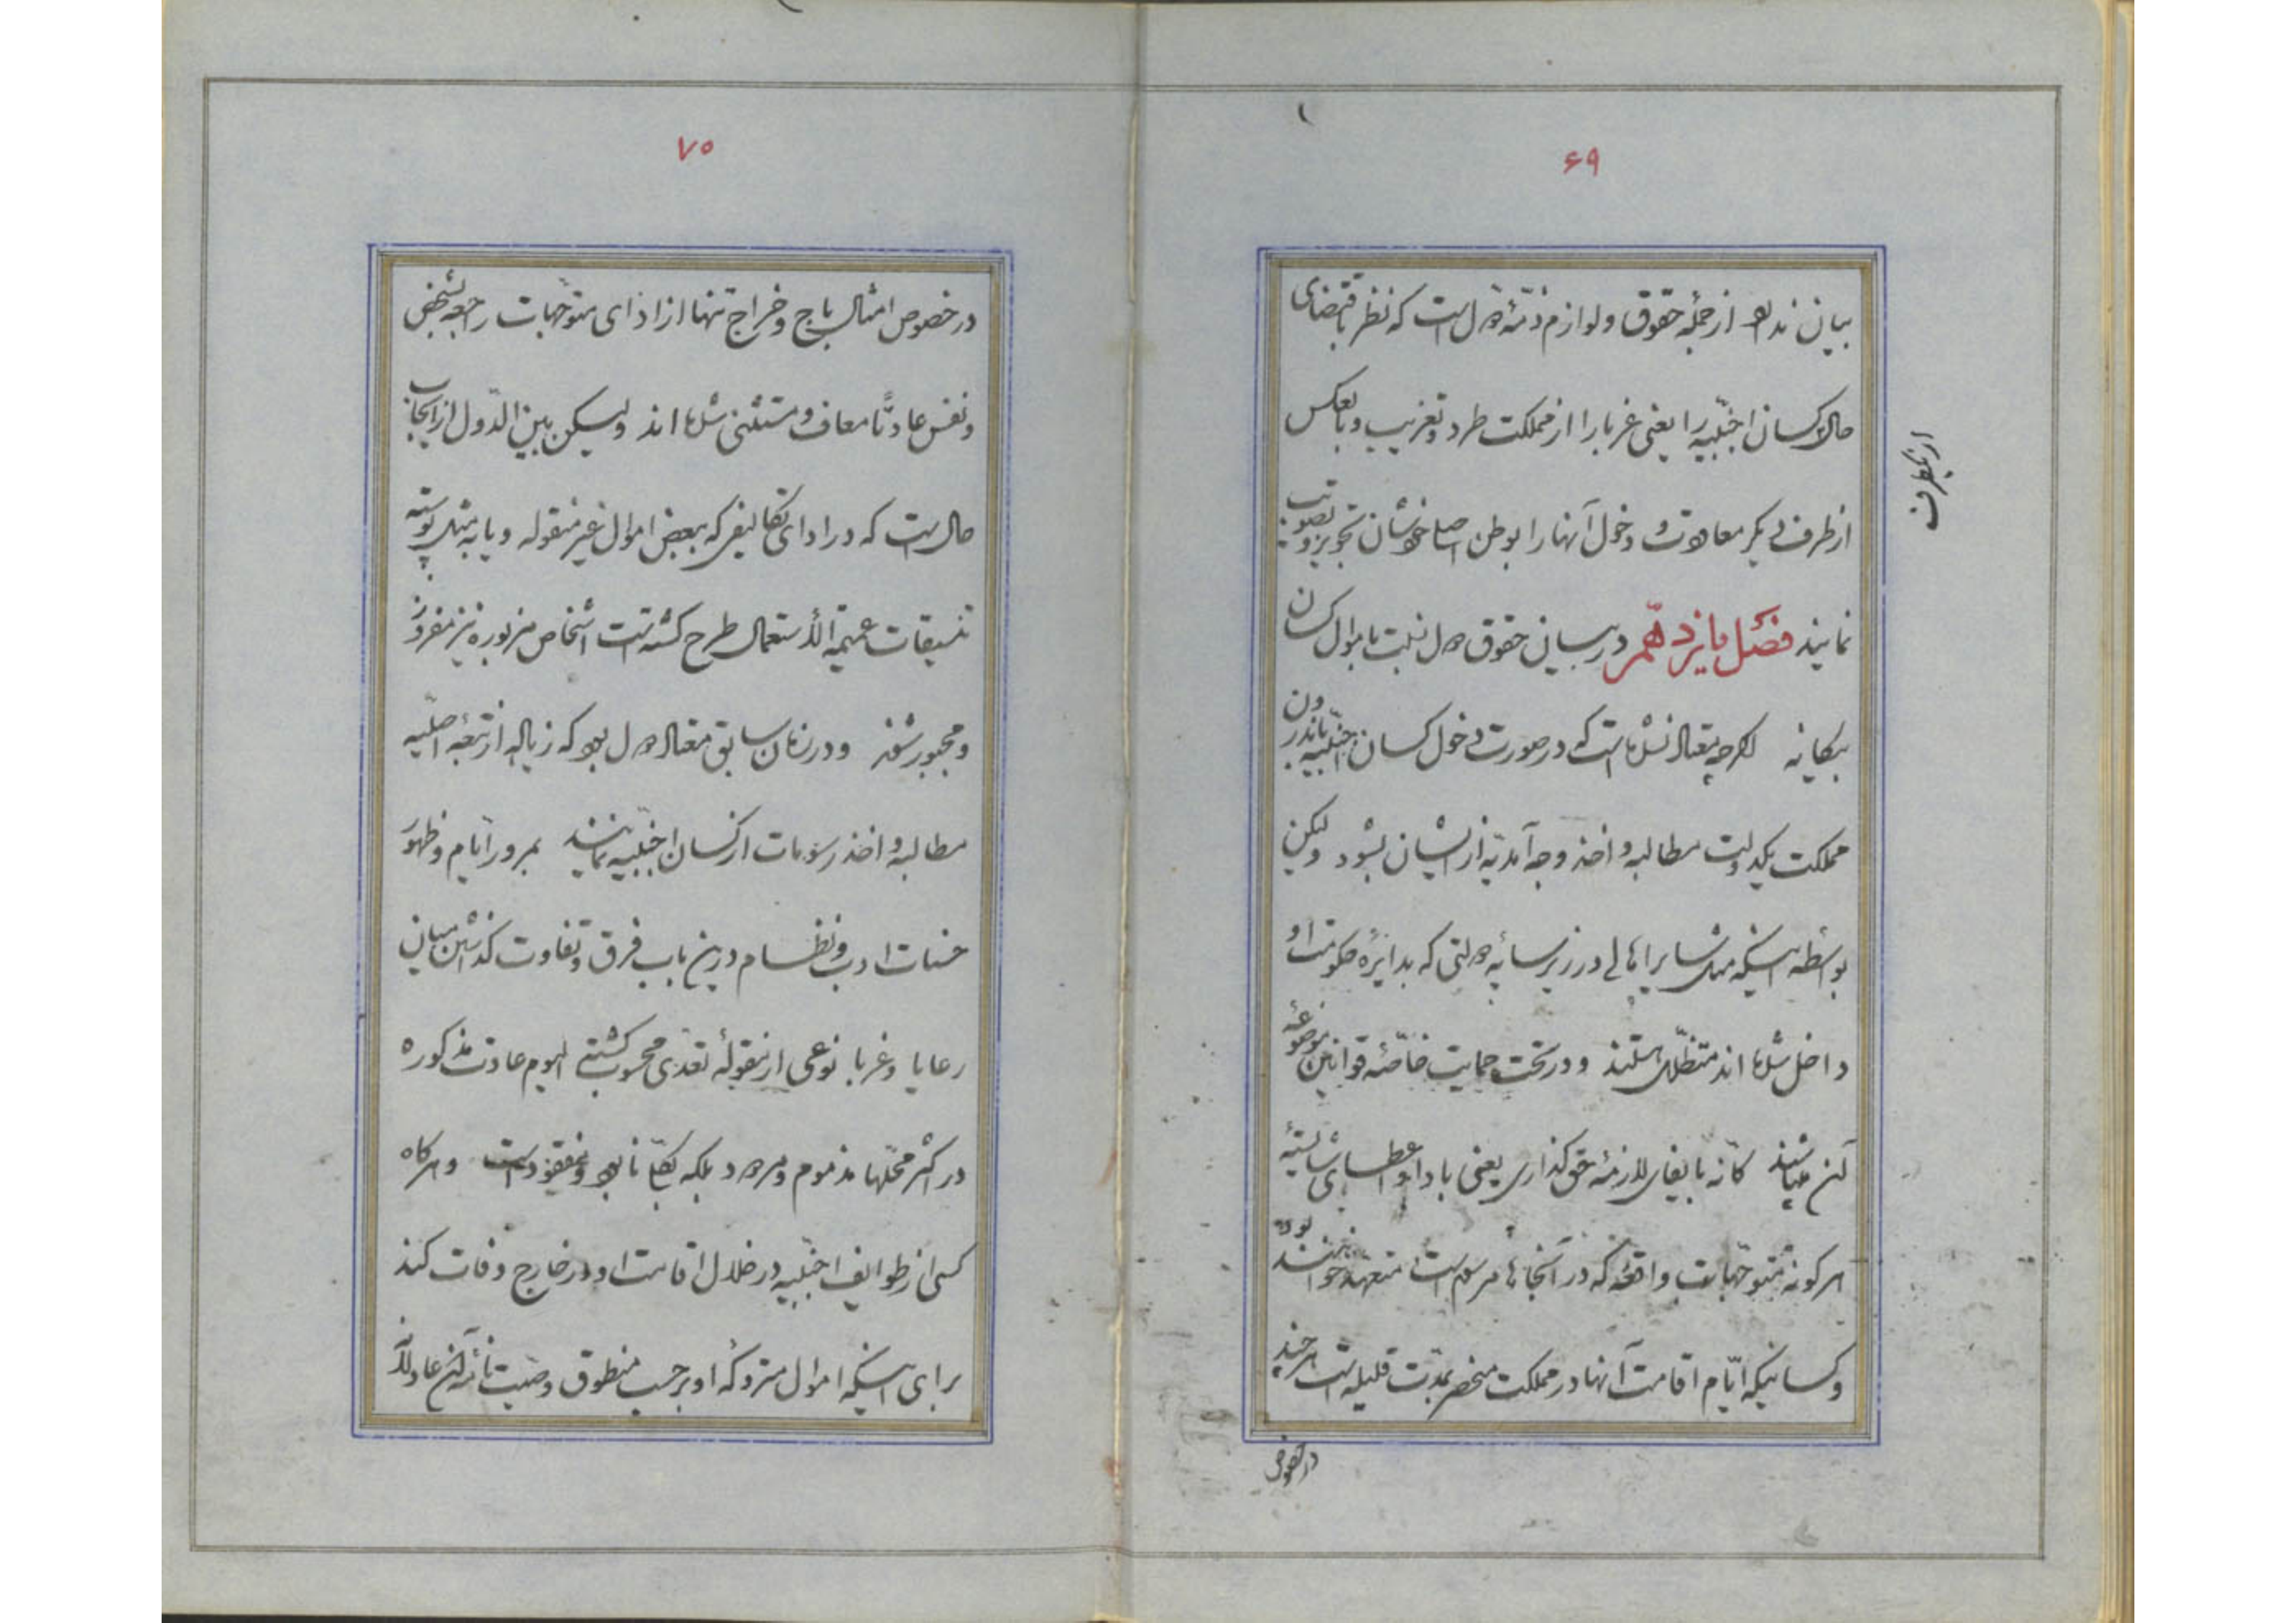 ۶۹
بیان ندارد از جمله حقوق و لوازم ذمّهٔ دول است که نظر باقتضای
حال کسان اجنبیه را یعنی غربا را از مملکت طرد و تغریب و بالعکس
از یکطرف
از طرف دیگر معاودت و دخول آنها را بوطن اصلی خودشان تجویز و تصویب
نمایند فصل پانزدهم در بیان حقوق دول نسبت باموال کسان
بیگانه اگرچه معتاد نشده است که در صورت دخول کسان اجنبیه باندرون
مملکت یکدولت مطالبه و اخذ وجه آمدیّه از ایشان بشود ولیکن
بواسطه اینکه مثل سایر اهالی در زیر سایه دولتی که بدایرهٔ حکومت او
داخل شده اند متظلّل هستند و در تحت حمایت خاصّهٔ قوانین موضوعهٔ
آن میباشند کانّه بایفای لازمهٔ حق گذاری یعنی بادا و اعطای شایستهٔ
هر گونه متوجّهات واقعه که در آنجاها مرسوم است متعهد خواهند بود
و کسانیکه ایّام اقامت آنها در مملکت منحصر بمدّت قلیله است هر چند
در خصوص
۷۰
در خصوص امثال باج و خراج تنها از ادای متوجّهات راجعه بشخص
و نفس عادتاً معاف و مستثنی شده اند ولیکن بین الدّول از ایجاب
حال است که در ادای تکالیفی که ببعض اموال غیر منقوله و یا به مثل پوسته
تنسیقات عمیمة الاستعمال طرح گشته است اشخاص مزبوره نیز مفروز
و مجبور شوند و در زمان سابق معتاد دول بود که زیاده از تبعهٔ اصلیّه
مطالبه و اخذ رسومات از کسان اجنبیه نمایند بمرور ایّام و ظهور
حسنات ادب و نظام درین باب فرق و تفاوت گذاشتن میان
رعایا و غربا نوعی از مقولهٔ تعدّی محسوب گشته الیوم عادت مذکوره
در اکثر محلّها مذموم و مردود بلکه بکلّی نابود و مفقود است و هرگاه
کسی از طوایف اجنبیه در خلال اقامت او در خارج وفات کند
برای اینکه اموال متروکهٔ او بر حسب منطوق وصیت نامهٔ آن عادلانه